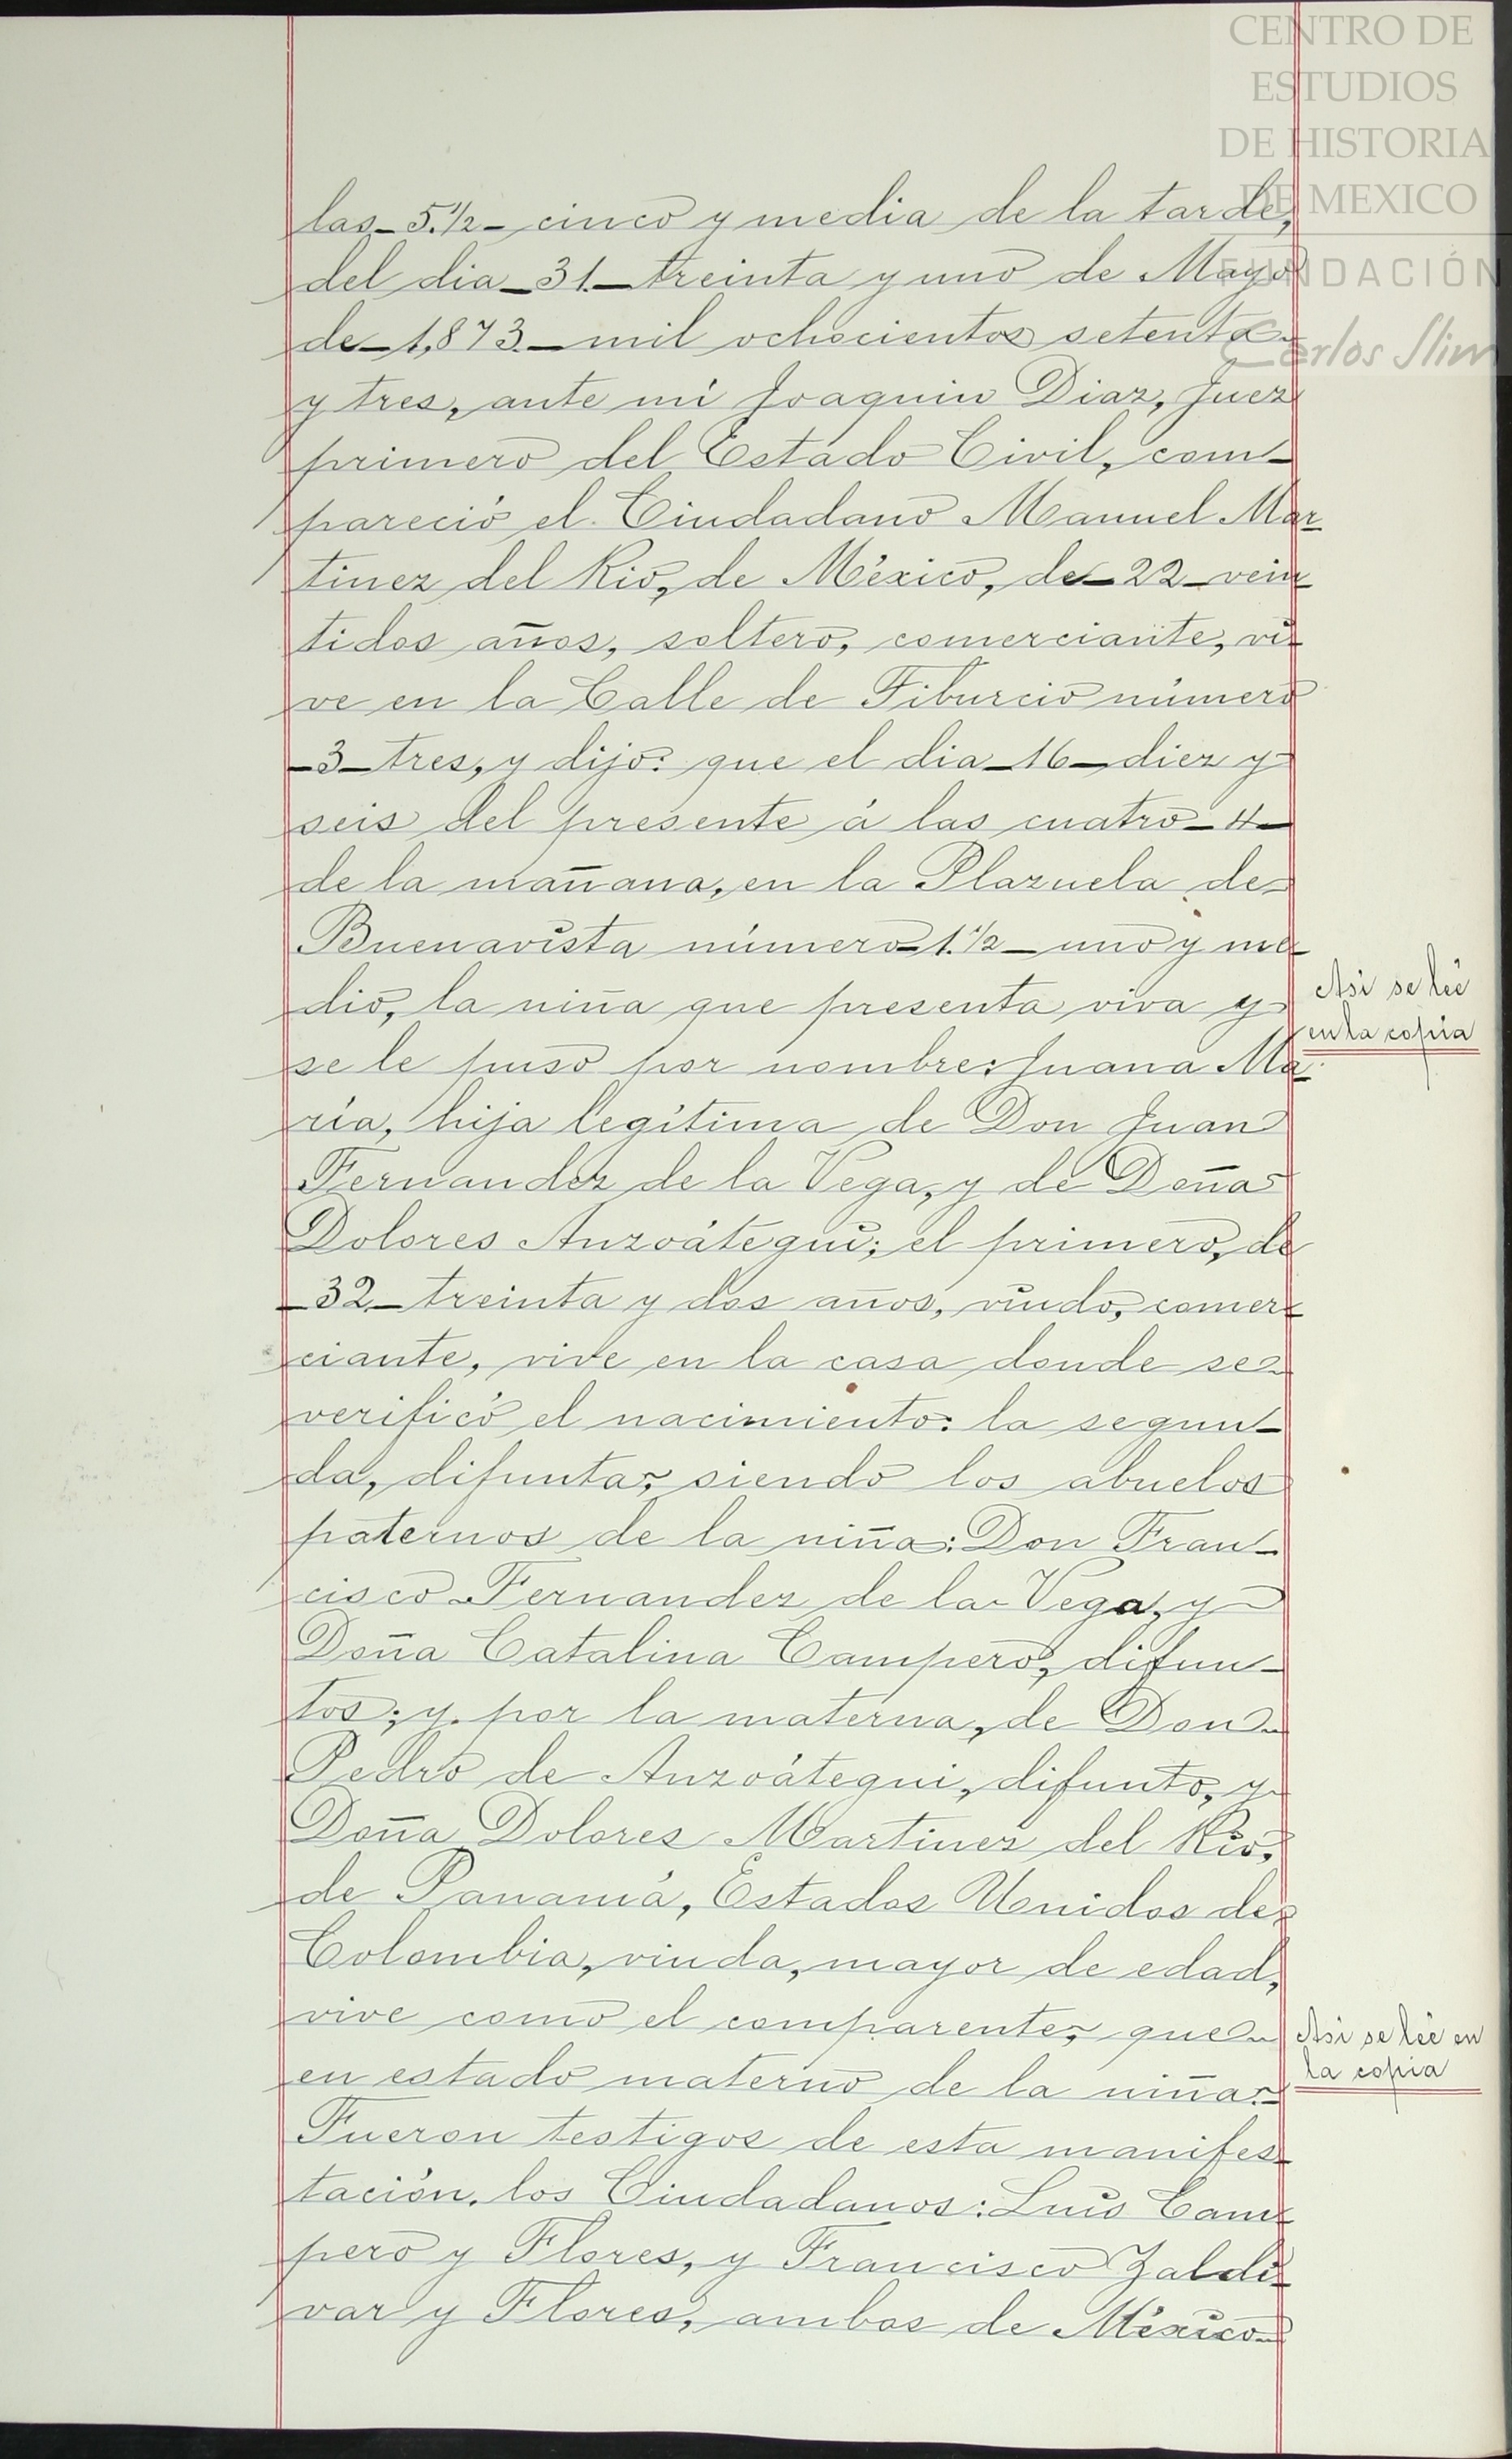 CENTRO DE
ESTUDIOS
DE HISTORIA
DE MEXICO
FUNDACIÓN
Carlos Slim
las_5.½_cinco y media de la tarde,
del dia_31_treinta y uno de Mayo
de_1,873._mil ochocientos setenta
y tres, ante mi Joaquin Diaz, Juez
primero del Estado Civil, com_
pareció el Ciudadano Manuel Mar_
tinez del Rio, de México, de_22_vein_
tidos años, soltero, comerciante, vi_
ve en la Calle de Tiburcio número
_3_tres, y dijo: que el dia_16_diez y
seis del presente á las cuatro_4_
de la mañana, en la Plazuela de
Buenavista número_1.½_uno y me_
dio, la niña que presenta viva y
Asi se leé
en la copia
se le puso por nombre: Juana Ma_
ría, hija legítima de Don Juan
Fernandez de la Vega, y de Doña
Dolores Anzoátegui; el primero, de
_32_treinta y dos años, viudo, comer_
ciante, vive en la casa donde se
verificó el nacimiento: la segun_
da, difunta; siendo los abuelos
paternos de la niña: Don Fran_
cisco Fernandez de la Vega, y
Doña Catalina Campero, difun_
tos; y por la materna, de Don
Pedro de Anzoátegui, difunto, y
Doña Dolores Martinez del Rio,
de Panamá, Estados Unidos de
Colombia, viuda, mayor de edad,
vive como el comparente, que
Asi se leé en
la copia
en estado materno de la niña.
Fueron testigos de esta manifes_
tación, los Ciudadanos: Luis Cam_
pero y Flores, y Francisco Zaldi_
var y Flores, ambos de México